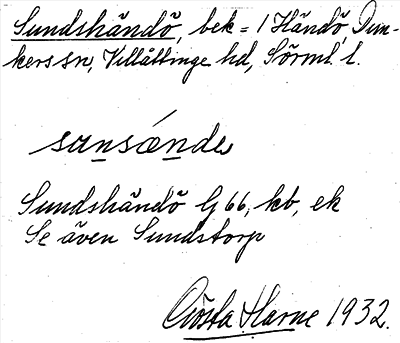 Sundshändö, bek = 1 Händö, Dun-
kers sn, Villåttinge hd, Sörml. l.
sunsénde
Sundshändö G 66, kb, ek
Se även Sundstorp
Gösta Harne 1932.